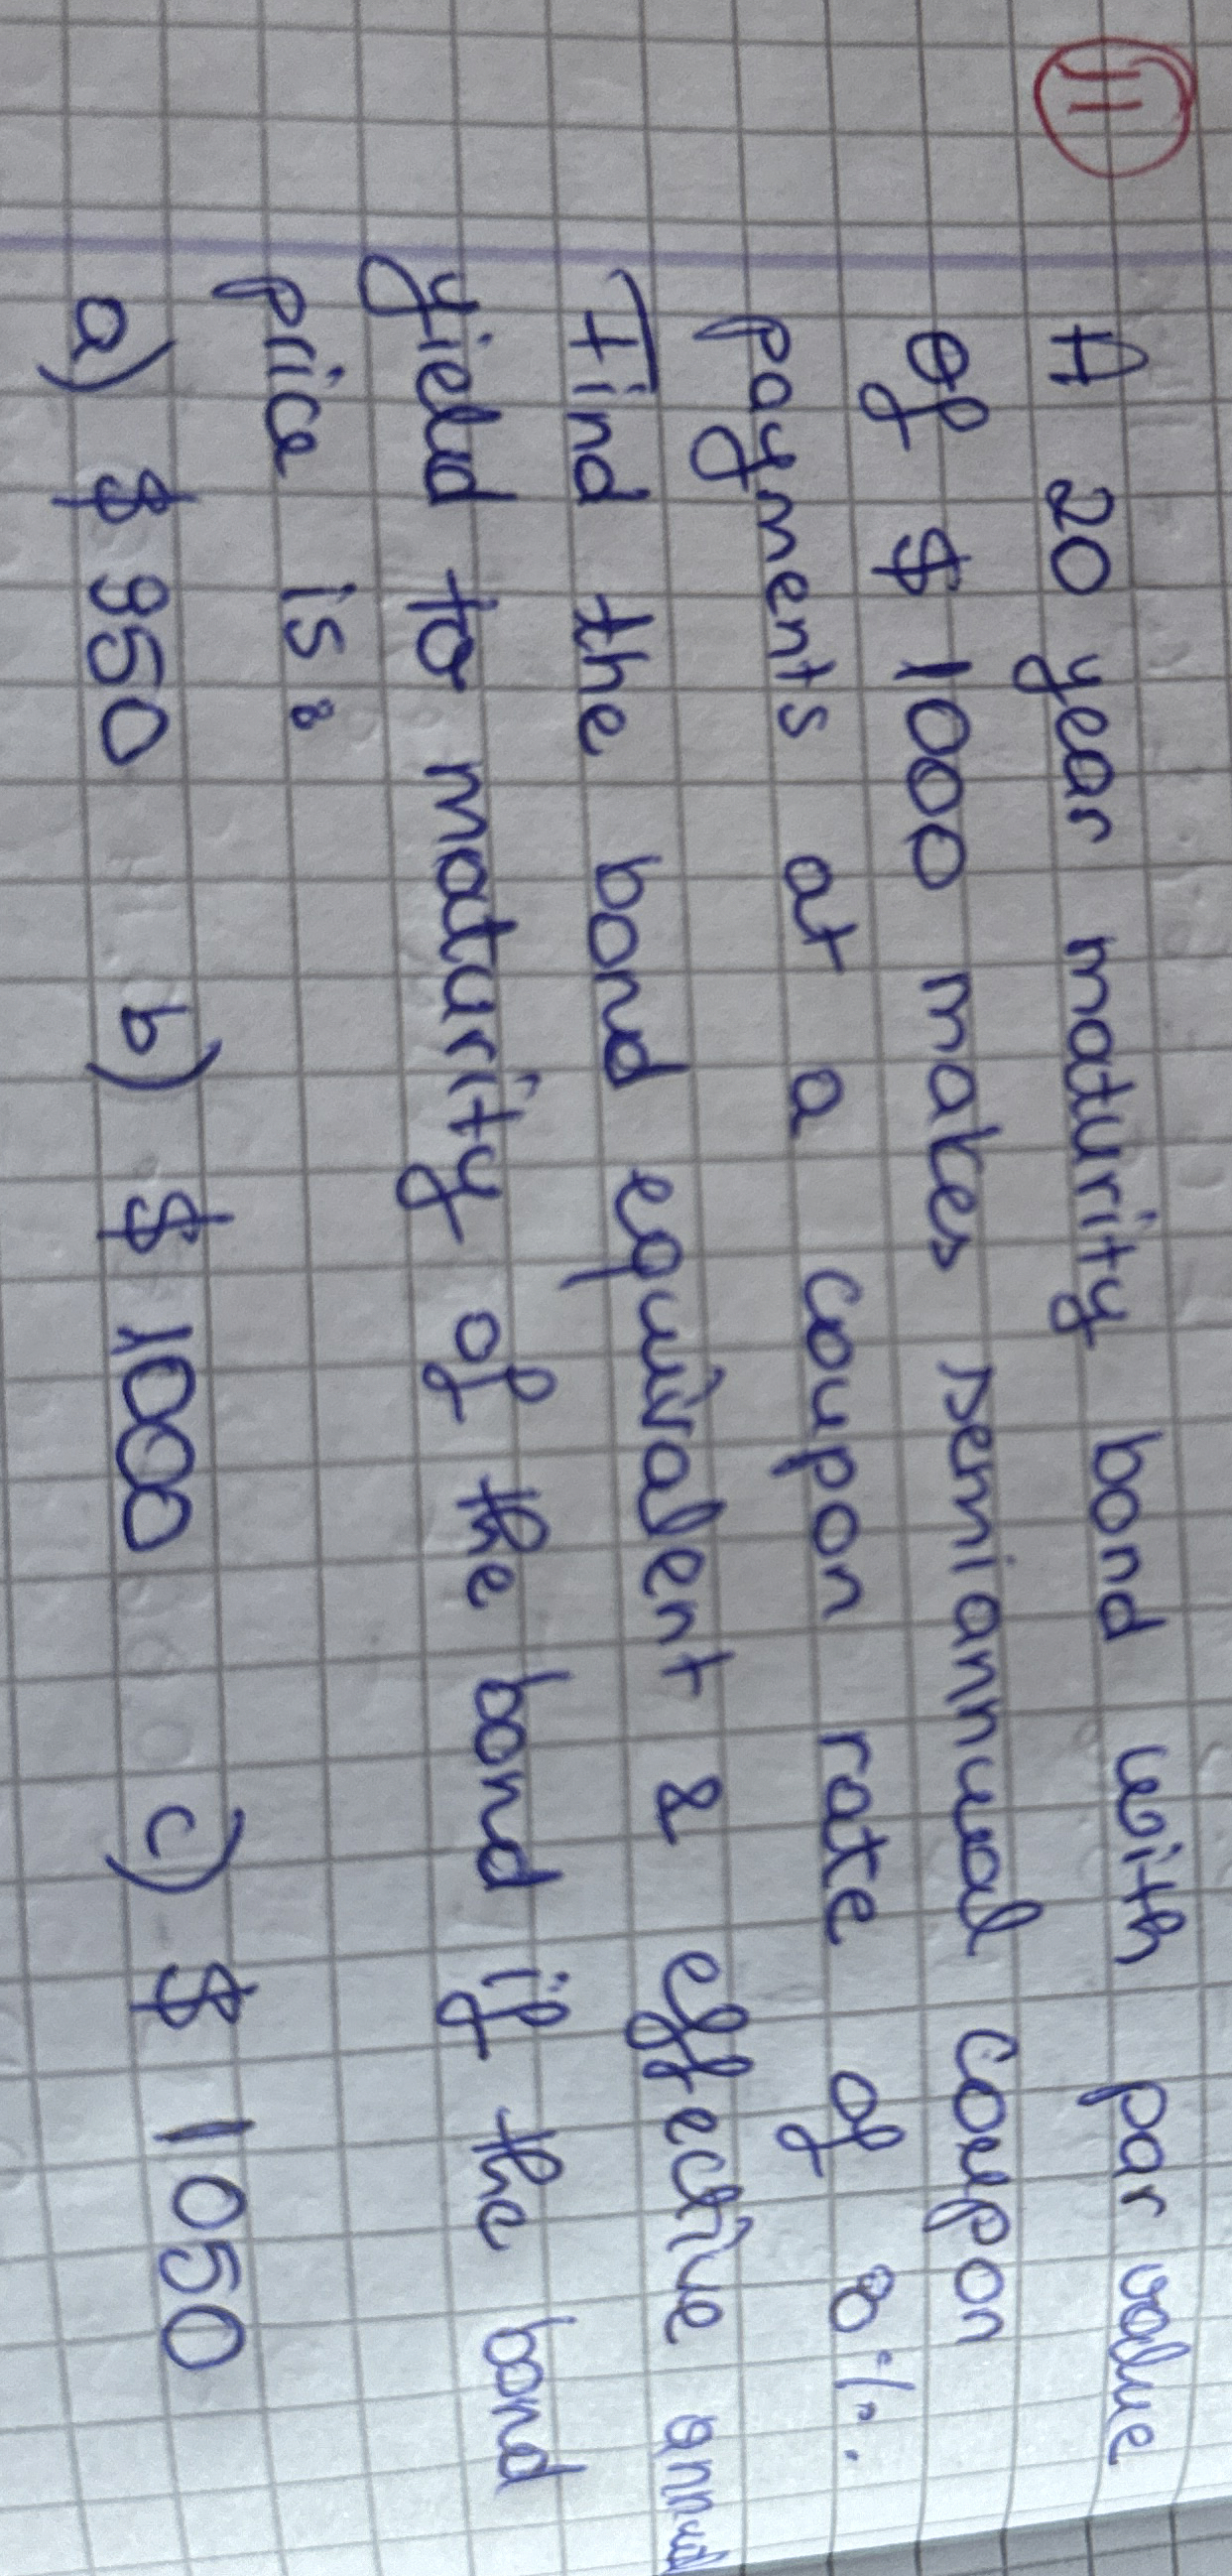 11
A 20 year maturity bond with par value
of $ 1000 makes semiannual coupon
payments at a coupon rate of 8%.
Find the bond equivalent & effective annual
yield to maturity of the bond if the bond
price is:
a) $ 950 b) $ 1000 c) $ 1050